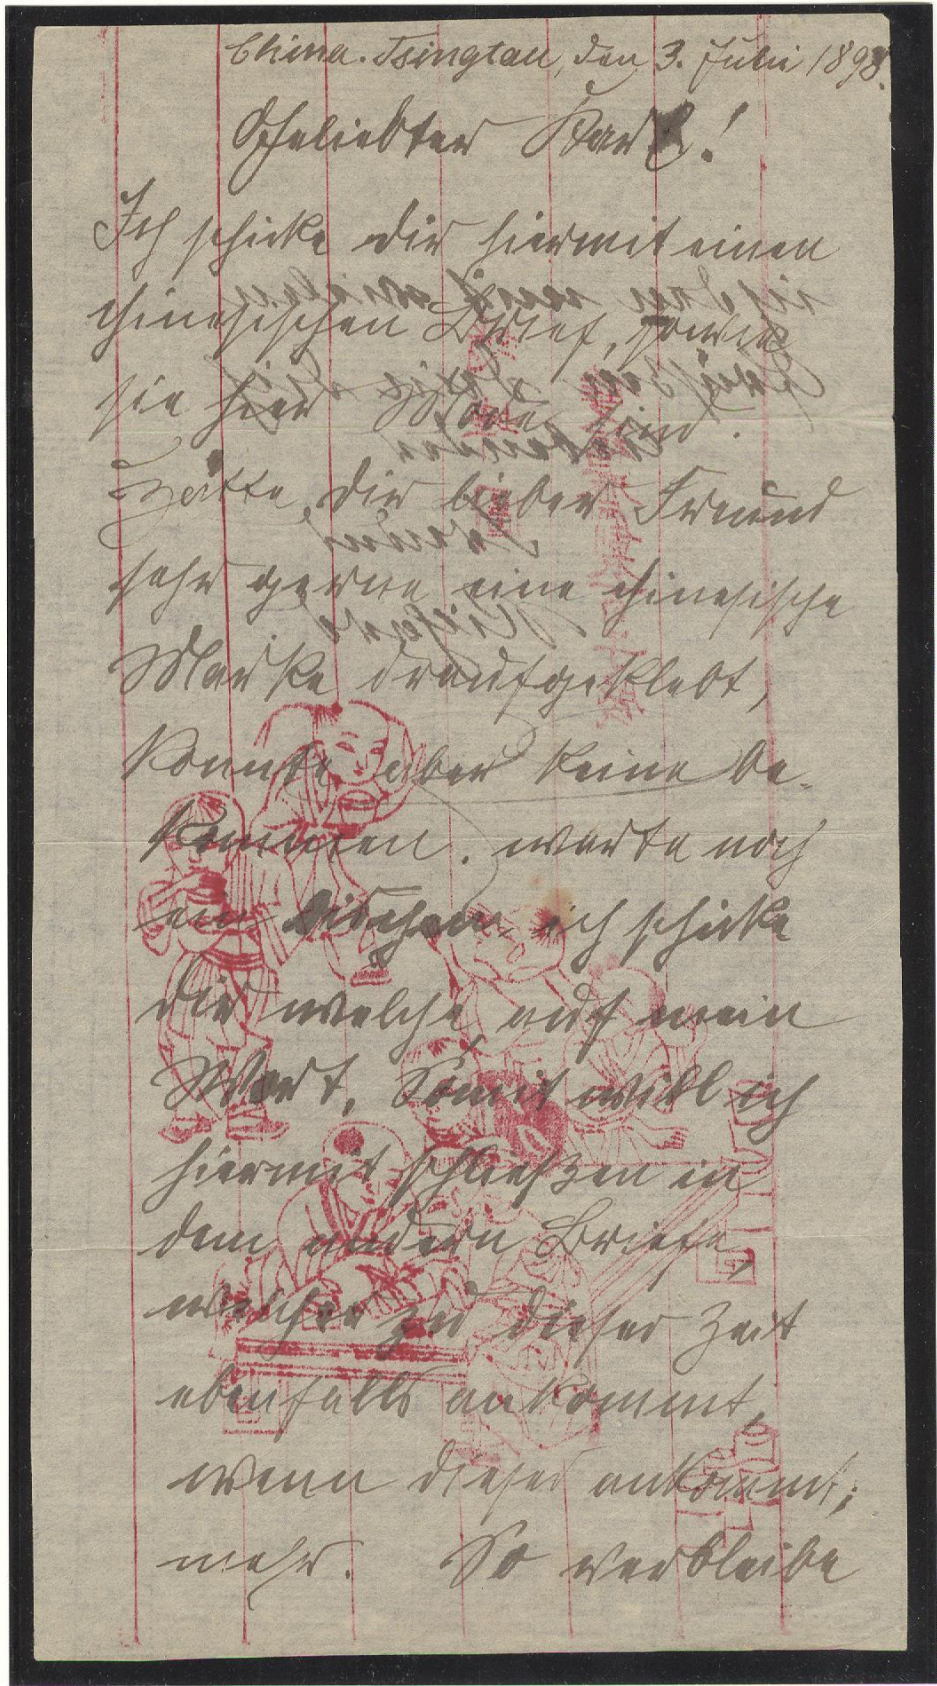 China. Tsingtau, den 3. Juli 1898.
Geliebter Karl!
Ich schicke dir hiermit einen
chinesischen Brief, sowie
sie hier Mode sind.
Hätte dir lieber Freund
sehr gerne eine chinesische
Marke draufgeklebt,
konnte aber keine be-
kommen. warte noch
ein bischen ich schicke
dir welche, auf mein
Wort. Somit will ich
hiermit schließen in
dem andern Briefe,
welcher zu dieser Zeit
ebenfalls ankommt,
wenn dieser ankommt;
mehr. So verbleibe